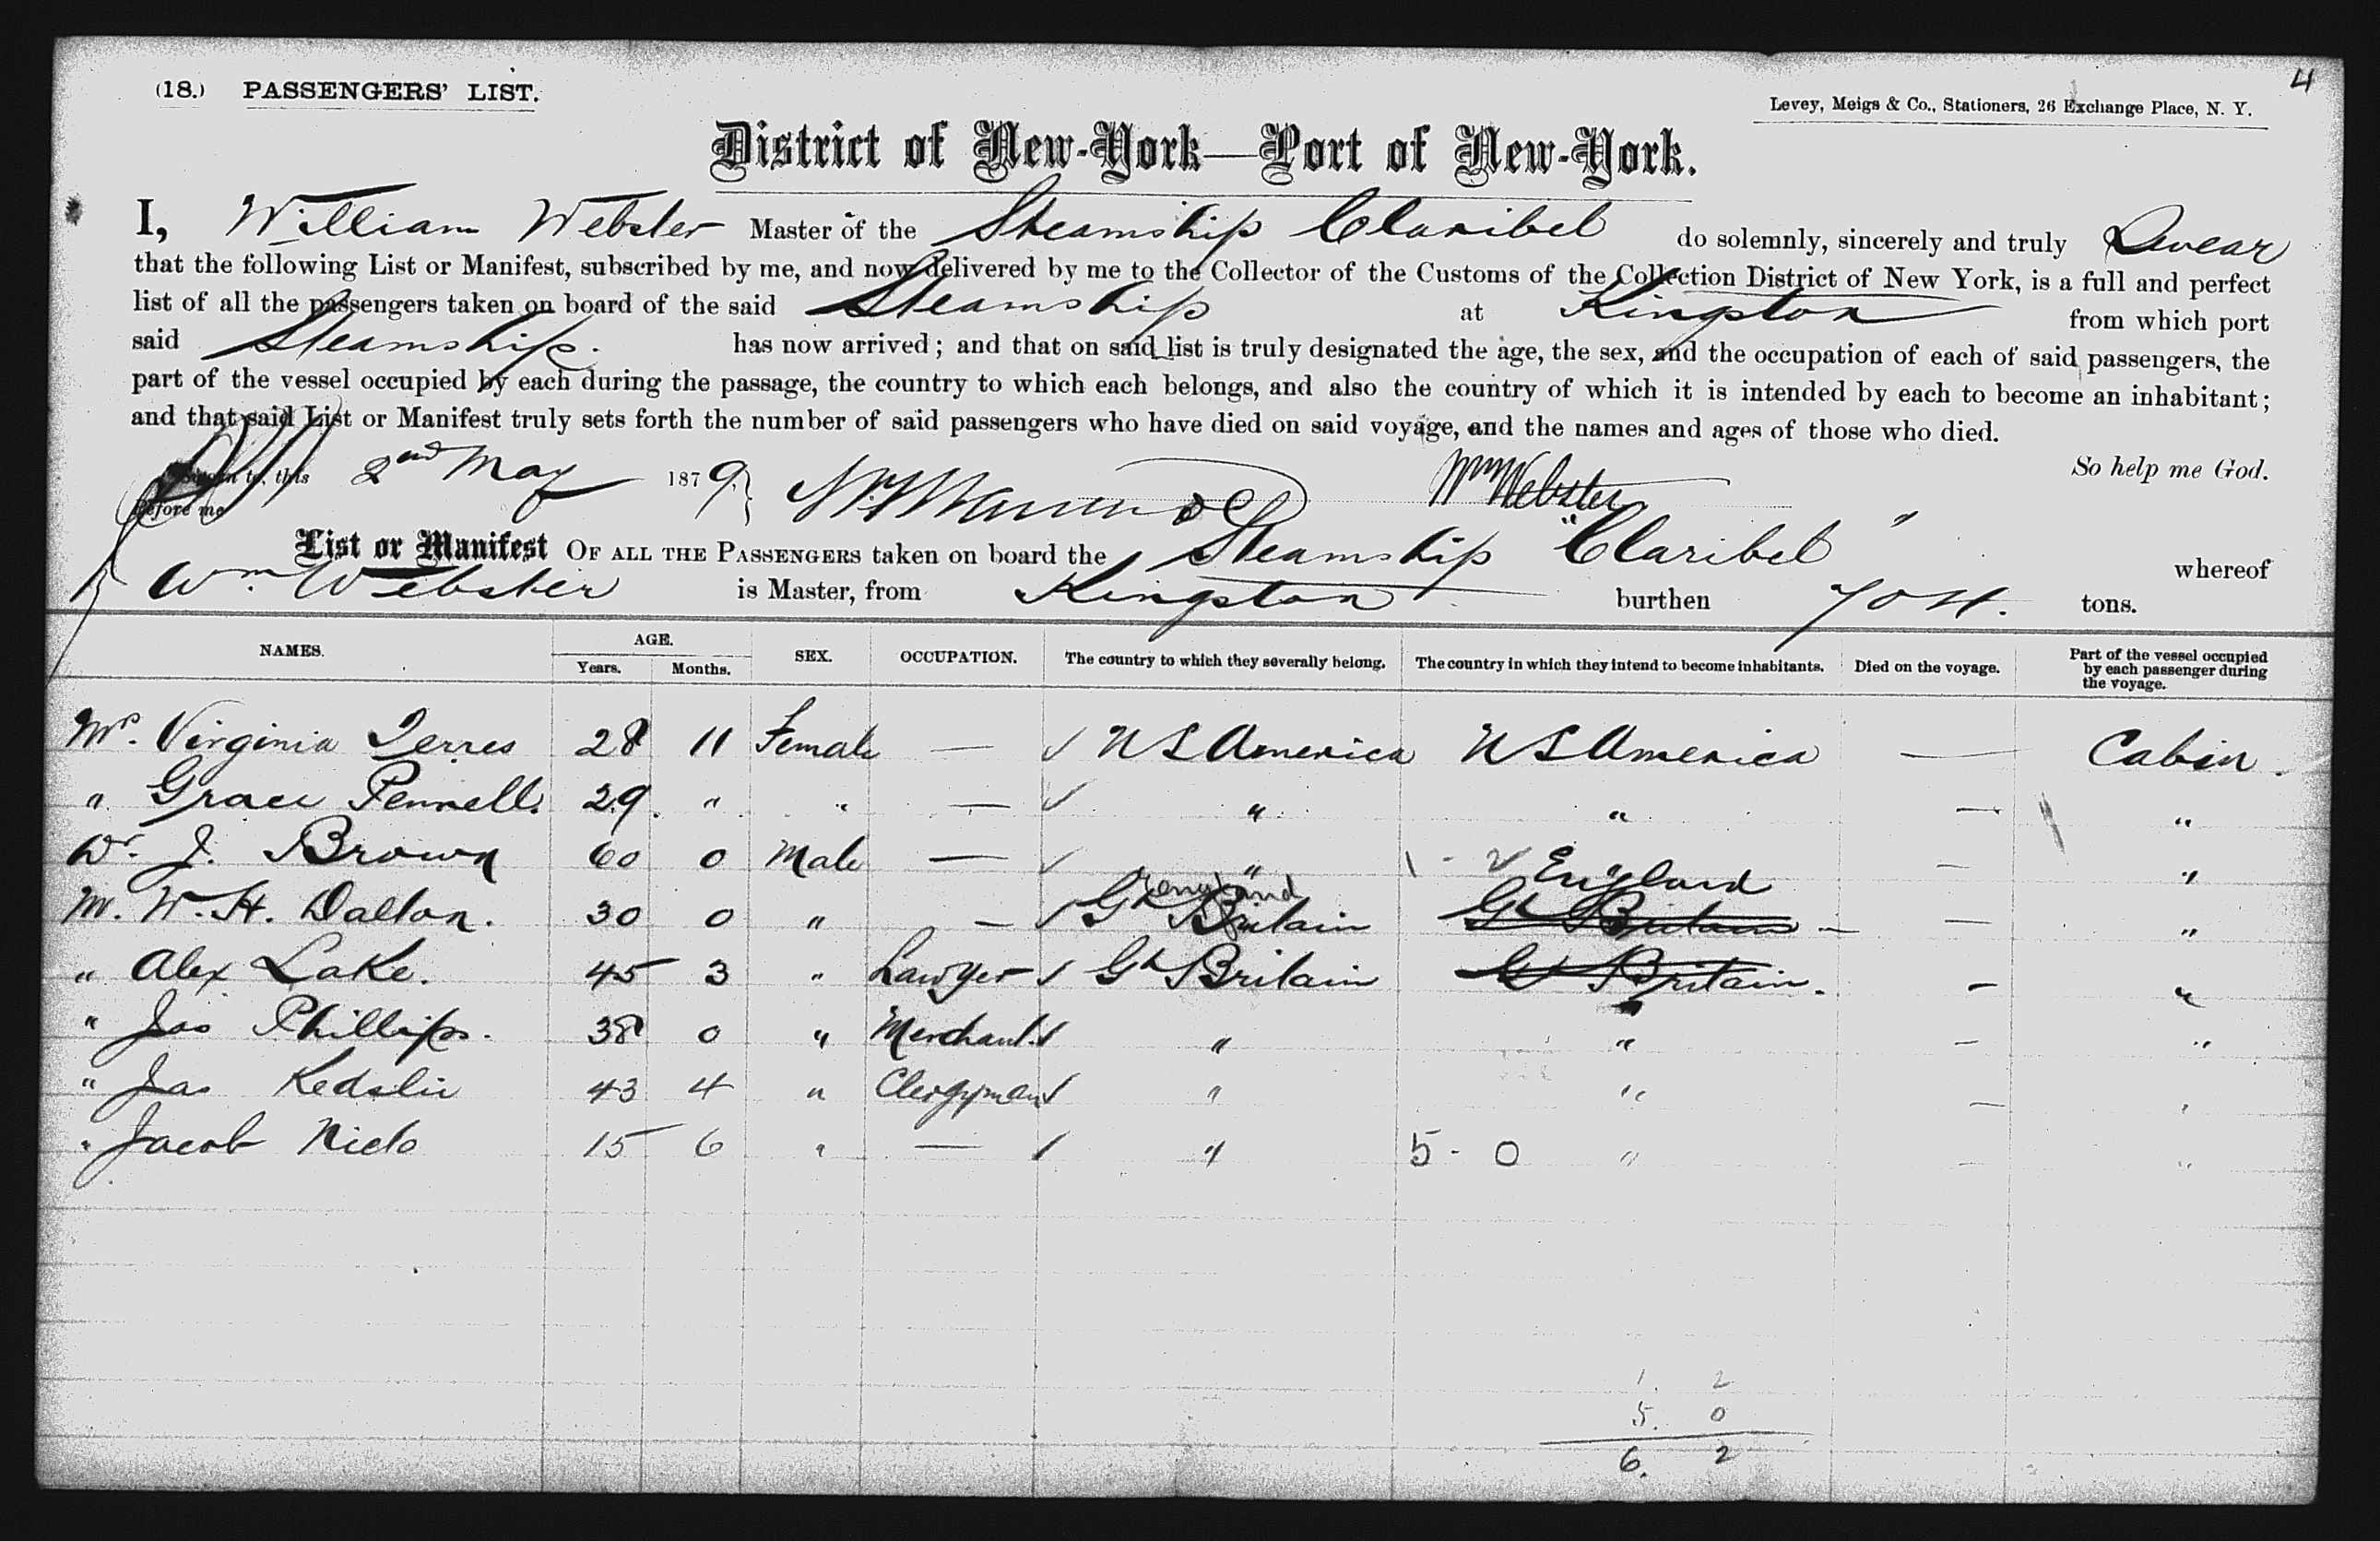 4
(18.) PASSENGERS' LIST.
Levey, Meigs & Co., Stationers, 26 Exchange Place, N. Y.
District of New-York—Port of New-York.
I, William Webster Master of the Steamship Claribel do solemnly, sincerely and truly Swear
that the following List or Manifest, subscribed by me, and now delivered by me to the Collector of the Customs of the Collection District of New York, is a full and perfect
list of all the passengers taken on board of the said Steamship at Kingston from which port
said Steamship. has now arrived; and that on said list is truly designated the age, the sex, and the occupation of each of said passengers, the
part of the vessel occupied by each during the passage, the country to which each belongs, and also the country of which it is intended by each to become an inhabitant;
and that said List or Manifest truly sets forth the number of said passengers who have died on said voyage, and the names and ages of those who died.
So help me God.
Sworn to, this 2nd May 1879, Wm Webster
Before me
List or Manifest OF ALL THE PASSENGERS taken on board the Steamship "Claribel" whereof
Wm Webster is Master, from Kingston burthen 704. tons.
NAMES. AGE. Years. Months. SEX. OCCUPATION. The country to which they severally belong. The country in which they intend to become inhabitants. Died on the voyage. Part of the vessel occupied by each passenger during the voyage.
Mrs. Virginia 28 11 Female — ✓ U S America U S America — Cabin.
" Grace Pennell. 29. " " — ✓ " " — "
Dr. J. Brown 60 0 Male — ✓ " 1 - 2 England — "
Mr. W. H. Dalton. 30 0 " — ✓ England Gt Britain Gt Britain — — "
" Alex Lake. 45 3 " Lawyer ✓ Gt Britain Gt Britain. — "
" Jas Phillips. 38 0 " Merchant. ✓ " " — "
" Jas 43 4 " Clergyman ✓ " " — "
" Jacob 15 6 " — ✓ " 5 - 0 " — "
1. 2
5. 0
6. 2